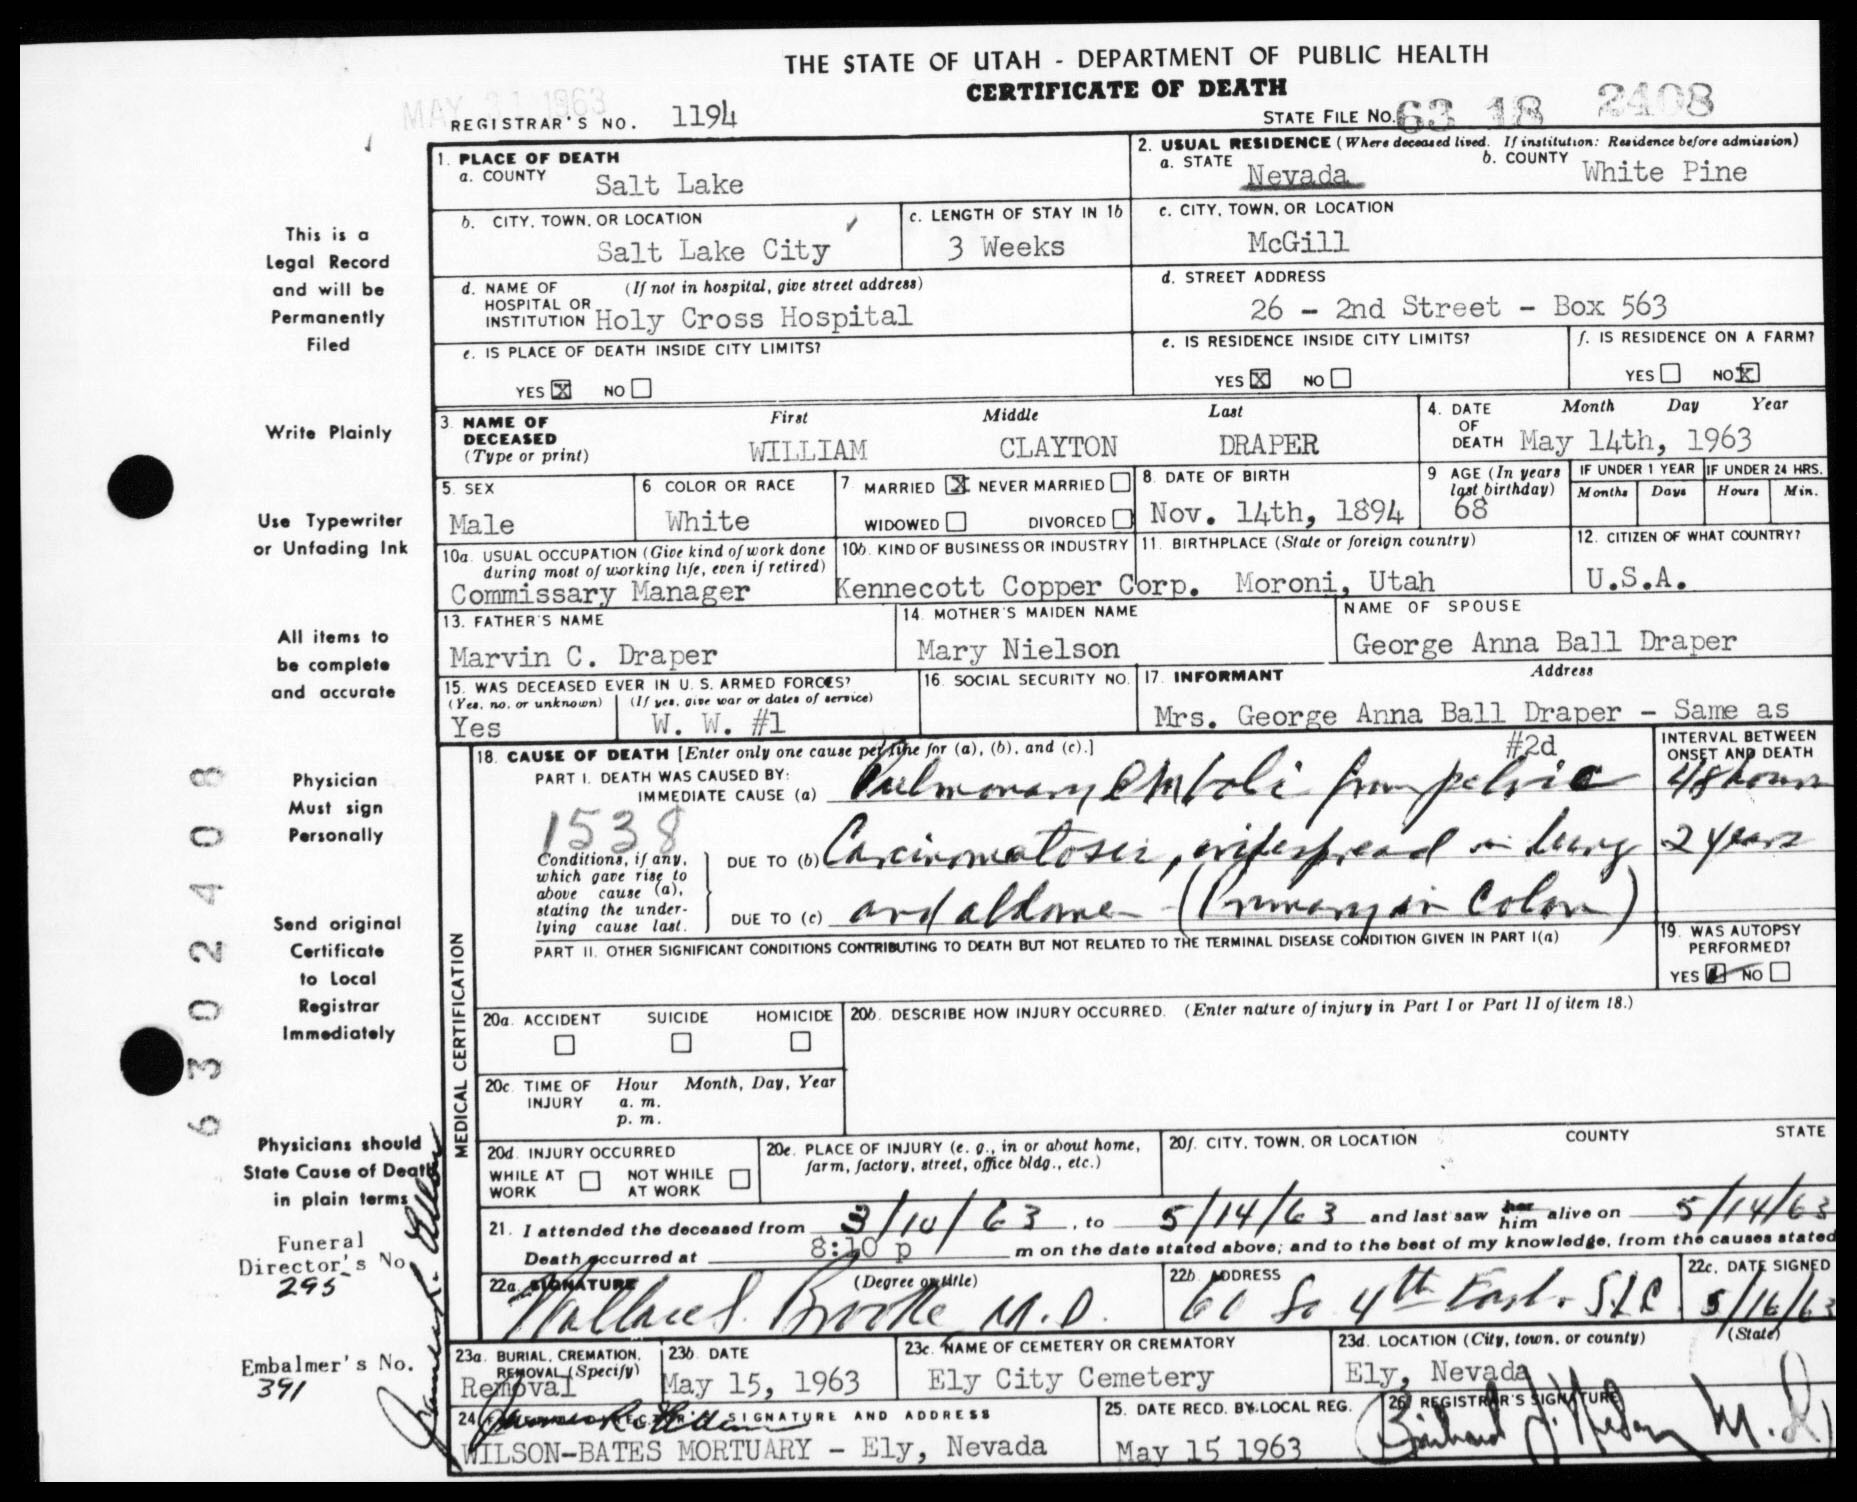 THE STATE OF UTAH - DEPARTMENT OF PUBLIC HEALTH
CERTIFICATE OF DEATH
MAY 31 1963
REGISTRAR'S NO. 1194
STATE FILE NO. 63 18 2408
This is a
Legal Record
and will be
Permanently
Filed
Write Plainly
Use Typewriter
or Unfading Ink
All items to
be complete
and accurate
Physician
Must sign
Personally
Send original
Certificate
to Local
Registrar
Immediately
Physicians should
State Cause of Death
in plain terms
Funeral
Director's No.
295
Embalmer's No.
391
63 02408
1. PLACE OF DEATH
a. COUNTY Salt Lake
2. USUAL RESIDENCE (Where deceased lived. If institution: Residence before admission)
a. STATE Nevada b. COUNTY White Pine
b. CITY, TOWN, OR LOCATION Salt Lake City
c. LENGTH OF STAY IN 1b 3 Weeks
c. CITY, TOWN, OR LOCATION McGill
d. NAME OF HOSPITAL OR INSTITUTION (If not in hospital, give street address) Holy Cross Hospital
d. STREET ADDRESS 26 - 2nd Street - Box 563
e. IS PLACE OF DEATH INSIDE CITY LIMITS?
YES X NO
e. IS RESIDENCE INSIDE CITY LIMITS?
YES X NO
f. IS RESIDENCE ON A FARM?
YES NO X
3. NAME OF DECEASED (Type or print)
First Middle Last
WILLIAM CLAYTON DRAPER
4. DATE OF DEATH Month Day Year
May 14th, 1963
5. SEX Male
6 COLOR OR RACE White
7. MARRIED X NEVER MARRIED
WIDOWED DIVORCED
8. DATE OF BIRTH Nov. 14th, 1894
9 AGE (In years last birthday) 68
IF UNDER 1 YEAR Months Days
IF UNDER 24 HRS. Hours Min.
10a. USUAL OCCUPATION (Give kind of work done during most of working life, even if retired)
Commissary Manager
10b. KIND OF BUSINESS OR INDUSTRY
Kennecott Copper Corp.
11. BIRTHPLACE (State or foreign country)
Moroni, Utah
12. CITIZEN OF WHAT COUNTRY?
U.S.A.
13. FATHER'S NAME
Marvin C. Draper
14. MOTHER'S MAIDEN NAME
Mary Nielson
NAME OF SPOUSE
George Anna Ball Draper
15. WAS DECEASED EVER IN U. S. ARMED FORCES?
(Yes, no, or unknown) (If yes, give war or dates of service)
Yes W. W. #1
16. SOCIAL SECURITY NO.
17. INFORMANT Address
Mrs. George Anna Ball Draper - Same as
#2d
MEDICAL CERTIFICATION
18. CAUSE OF DEATH [Enter only one cause per line for (a), (b), and (c).]
INTERVAL BETWEEN ONSET AND DEATH
PART I. DEATH WAS CAUSED BY:
IMMEDIATE CAUSE (a) Pulmonary Emboli from pelvic 48 hours
1538
Conditions, if any, which gave rise to above cause (a), stating the underlying cause last.
DUE TO (b) Carcinomatosis, widespread in lung 2 years
DUE TO (c) and abdomen (Primary in Colon)
PART II. OTHER SIGNIFICANT CONDITIONS CONTRIBUTING TO DEATH BUT NOT RELATED TO THE TERMINAL DISEASE CONDITION GIVEN IN PART I(a)
19. WAS AUTOPSY PERFORMED?
YES NO
20a. ACCIDENT SUICIDE HOMICIDE
20b. DESCRIBE HOW INJURY OCCURRED. (Enter nature of injury in Part I or Part II of item 18.)
20c. TIME OF INJURY Hour Month, Day, Year
a. m.
p. m.
20d. INJURY OCCURRED
WHILE AT WORK NOT WHILE AT WORK
20e. PLACE OF INJURY (e. g., in or about home, farm, factory, street, office bldg., etc.)
20f. CITY, TOWN, OR LOCATION COUNTY STATE
21. I attended the deceased from 3/10/63, to 5/14/63 and last saw her him alive on 5/14/63
Death occurred at 8:10 p m on the date stated above; and to the best of my knowledge, from the causes stated
22a. SIGNATURE (Degree or title)
Wallace S. Brooke M.D.
22b. ADDRESS
60 So 4th East. SLC
22c. DATE SIGNED
5/16/63
23a. BURIAL, CREMATION, REMOVAL (Specify)
Removal
23b. DATE
May 15, 1963
23c. NAME OF CEMETERY OR CREMATORY
Ely City Cemetery
23d. LOCATION (City, town, or county) (State)
Ely, Nevada
24. SIGNATURE AND ADDRESS
WILSON-BATES MORTUARY - Ely, Nevada
25. DATE RECD. BY LOCAL REG.
May 15 1963
26. REGISTRAR'S SIGNATURE
M.D.